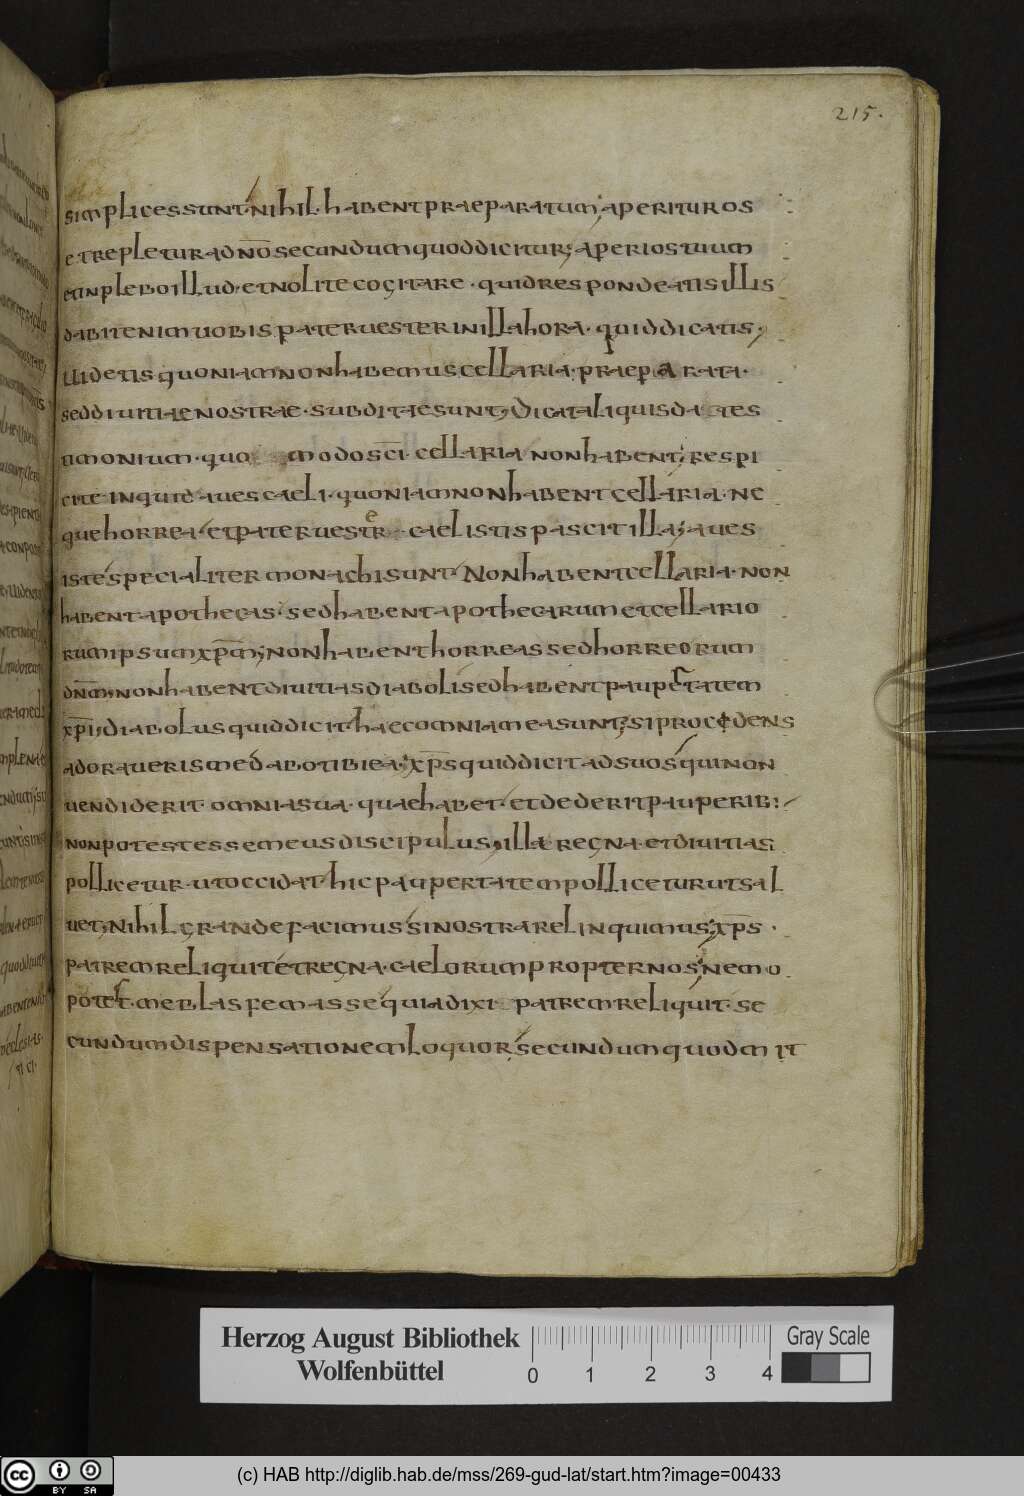 215.
simplices sunt. nihil habent praeparatum; aperitur os
et repletur adnō secundum quod dicitur; aperi os tuum
et inplebo illud. et nolite cogitare. quid respondeatis illis
dabit enim uobis pater uester in illa hora. quid dicatis;
Uidetis quoniam non habemus cellaria. praeparata.
sed diuitiae nostrae. subditae sunt; Dicat aliquis da tes
timonium. quo modo sc̄i cellaria non habent; respi
cite inquid aues caeli. quoniam non habent cellaria. ne
que horrea. et pater uester caelistis pascit illa; aues
iste specialiter monachi sunt. Non habent cellaria. non
habent apothecas. sed habent apothecarum et cellario
rum ipsum xp̄m; non habent horreas sed horreorum
dn̄m; non habent diuitias diaboli sed habent paupertatem
xp̄i; diabolus quid dicit. haec omnia mea sunt; si procedens
adoraueris me dabo tibi ea; xp̄s quid dicit ad suos qui non
uendiderit omnia sua. quae habet. et dederit pauperib;
non potest esse meus discipulus; illa regna et diuitias
pollicetur ut occidat. hic paupertatem pollicetur ut sal
uet; Nihil grande facimus si nostra relinquimus; xp̄s.
patrem reliquit et regna. caelorum propter nos; nemo
potest. me blasfemasse quia dixi patrem reliquit. se
cundum dispensationem loquor. secundum quod mit
Herzog August Bibliothek
Wolfenbüttel
0 1 2 3 4
Gray Scale
cc BY SA
(c) HAB http://diglib.hab.de/mss/269-gud-lat/start.htm?image=00433